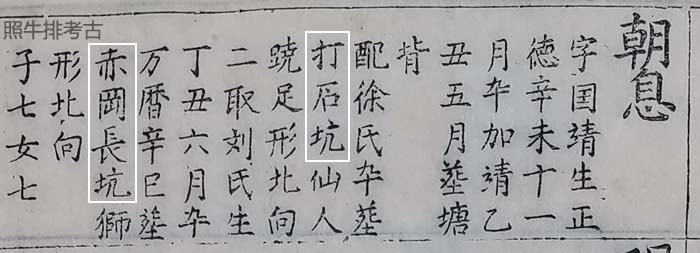 照牛排考古
朝息
字囯靖生正
德辛未十一
月卒加靖乙
丑五月塟塘
背
配徐氏卒塟
打石坑仙人
跷足形北向
二取刘氏生
丁丑六月卒
万暦辛巳塟
赤岡長坑獅
形北向
子七女七